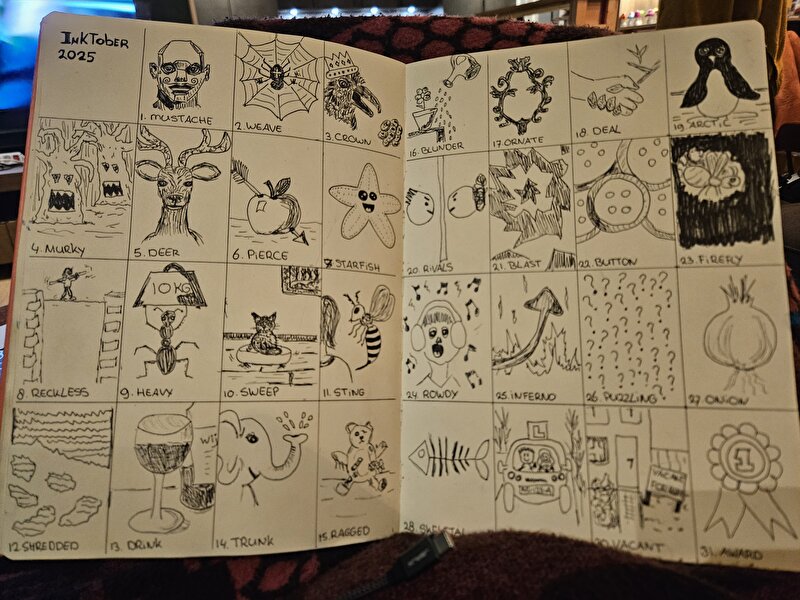 INKTOBER
2025
1. MUSTACHE
2. WEAVE
3. CROWN
4. MURKY
5. DEER
6. PIERCE
7. STARFISH
8. RECKLESS
10 KG
9. HEAVY
10. SWEEP
11. STING
12. SHREDDED
13. DRINK
14. TRUNK
15. RAGGED
16. BLUNDER
17. ORNATE
18. DEAL
19. ARCTIC
20. RIVALS
21. BLAST
22. BUTTON
23. FIREFLY
24. ROWDY
25. INFERNO
26. PUZZLING
27. ONION
28. SKELETAL
L
7
VACANT
30. VACANT
1
31. AWARD